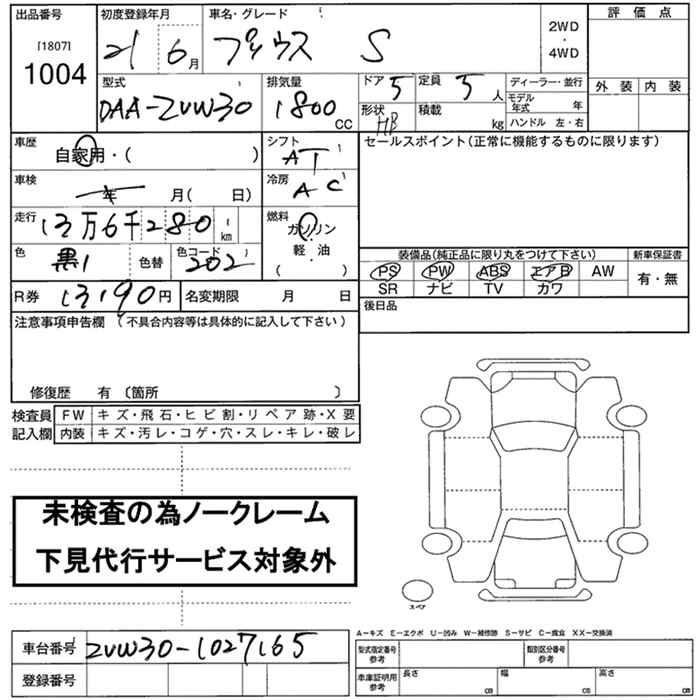 出品番号 初度登録年月 車名・グレード 評価点
[1807] 21 6月 プリウス S 2WD・4WD
1004
型式 排気量 ドア 5 定員 5人 ディーラー・並行 外装 内装
DAA-ZVW30 1800 CC 形状 HB 積載 kg モデル年式 年
ハンドル 左・右
車歴 自家用・( ) シフト AT セールスポイント(正常に機能するものに限ります)
車検 年 月( 日) 冷房 AC
走行 13万6千280 km 燃料 ガソリン・軽油 ( )
色 黒1 色替 色コード 202 装備品(純正品に限り丸をつけて下さい) 新車保証書
PS PW ABS エアB AW 有・無
SR ナビ TV カワ
R券 13190円 名変期限 月 日 後日品
注意事項申告欄 (不具合内容等は具体的に記入して下さい)
修復歴 有 〔箇所 〕
検査員記入欄 FW キズ・飛石・ヒビ割・リペア跡・X要
内装 キズ・汚レ・コゲ・穴・スレ・キレ・破レ
未検査の為ノークレーム
下見代行サービス対象外
A-キズ E-エクボ U-凹み W-補修跡 S-サビ C-腐食 XX-交換済
車台番号 ZVW30-1027165 型式指定番号 参考 類別区分番号 参考
登録番号 車庫証明用 参考 長さ cm 幅 cm 高さ cm